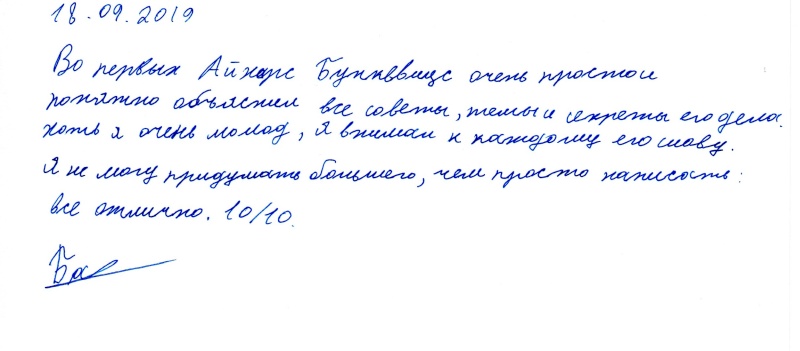 18.09.2019
Во первых Айнарс Букквевицс очень просто и
понятно объяснил все советы, темы и секреты его дела.
хоть я очень молод, я внимал к каждому его слову.
Я не могу придумать большего, чем просто написать:
все отлично. 10/10.